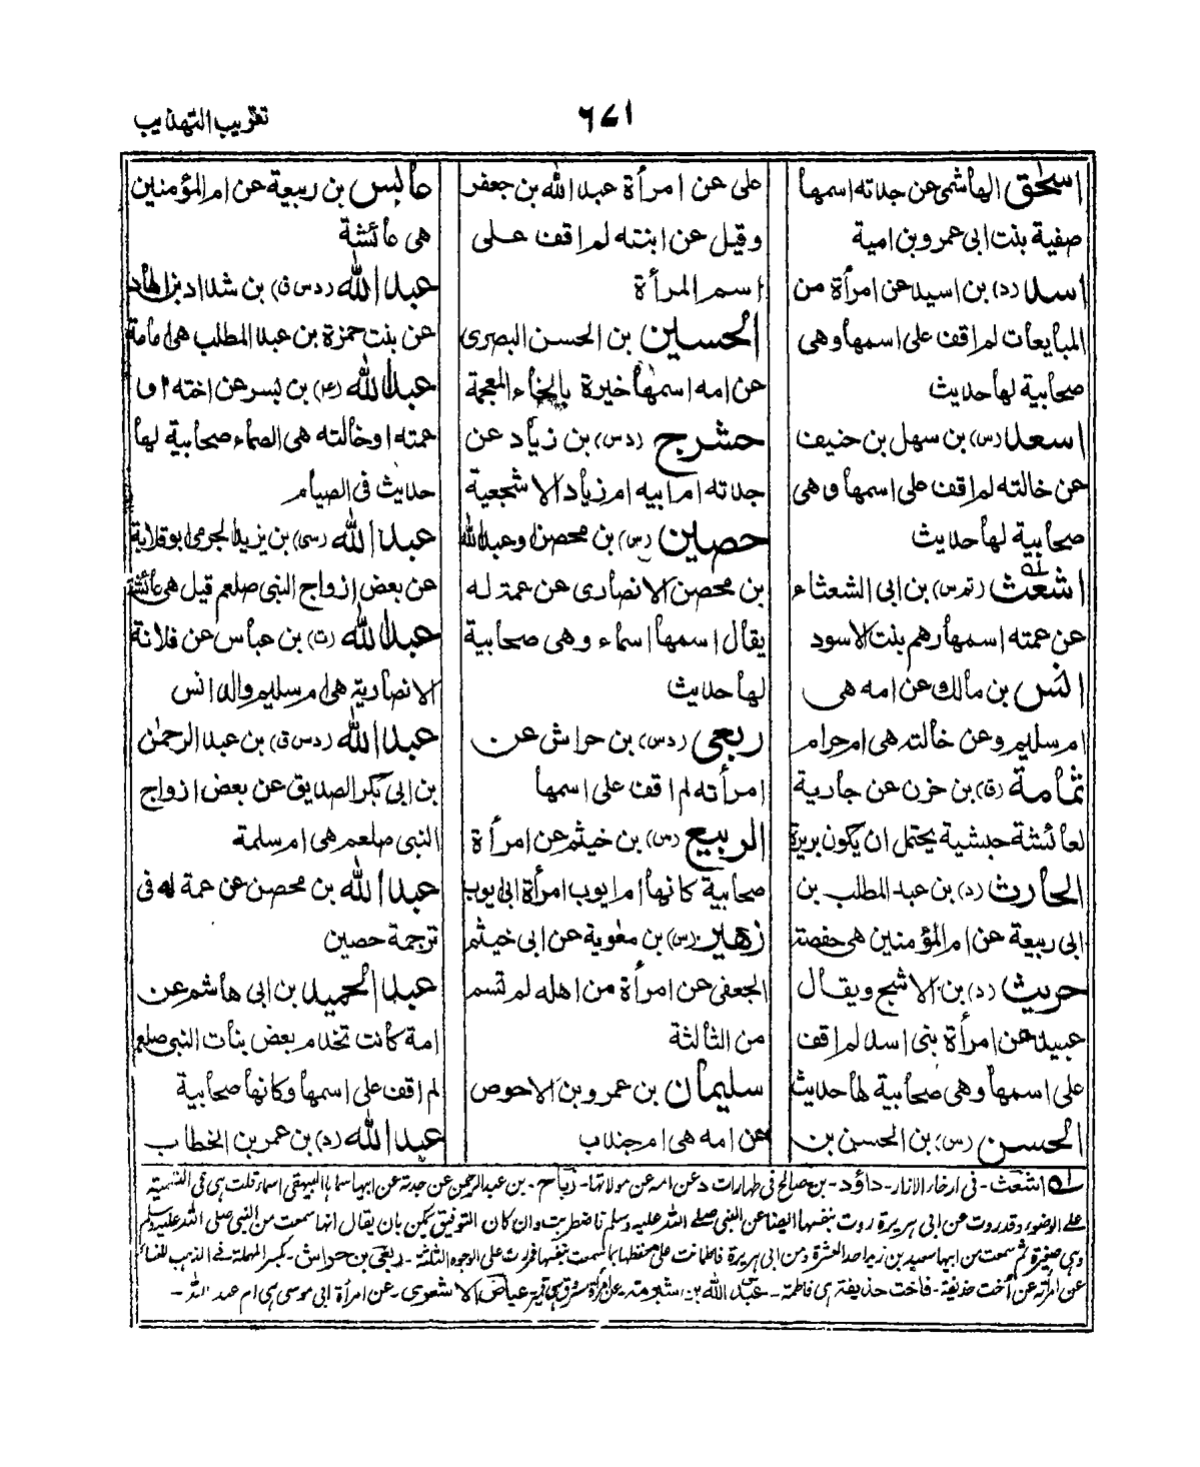 تقريب التهذيب
٤٧١
اسحٰق الهاشمى عن جدته اسمها
صفية بنت ابى عمرو بن امية
اسد (د) بن اسيد عن امرأة من
المبايعات لم اقف على اسمها وهى
صحابية لها حديث
اسعد (س) بن سهل بن حنيف
عن خالته لم اقف على اسمها وهى
صحابية لها حديث
اشعث (تم س) بن ابى الشعثاء
عن عمته اسمها رهم بنت الاسود
انس بن مالك عن امه هى
ام سليم وعن خالته هى ام حرام
ثمامة (ق) بن حزن عن جارية
لعائشة حبشية يحتمل ان يكون بريرة
الحارث (د) بن عبد المطلب بن
ابى ربيعة عن ام المؤمنين هى حفصة
حريث (د) بن الاشج ويقال
عبيد عن امرأة بنى اسد لم اقف
على اسمها وهى صحابية لها حديث
الحسن (س) بن الحسن بن
على عن امرأة عبد الله بن جعفر
وقيل عن ابنته لم اقف على
اسم المرأة
الحسين بن الحسن البصرى
عن امه اسمها خيرة بالخاء المعجمة
حشرج (د س) بن زياد عن
جدته ام ابيه ام زياد الاشجعية
حصين (س) بن محصن وعبد الله
بن محصن الانصارى عن عمة له
يقال اسمها اسماء وهى صحابية
لها حديث
ربعى (د س) بن حراش عن
امرأته لم اقف على اسمها
الربيع (س) بن خيثم عن امرأة
صحابية كانها ام ايوب امرأة ابى ايوب
زهير (س) بن معٰوية عن ابى خيثم
الجعفى عن امرأة من اهله لم تسم
من الثالثة
سليمان بن عمرو بن الاحوص
عن امه هى ام جندب
عابس بن ربيعة عن ام المؤمنين
هى عائشة
عبد الله (د س ق) بن شداد بن الهاد
عن بنت حمزة بن عبد المطلب هى امامة
عبد الله (م) بن بسر عن اخته او
عمته او خالته هى الصماء صحابية لها
حديث فى الصيام
عبد الله (س) بن يزيد الجرمى ابو قلابة
عن بعض ازواج النبى صلعم قيل هى عائشة
عبد الله (ت) بن عباس عن فلانة
الانصارية هى ام سليم والد انس
عبد الله (د س ق) بن عبد الرحمٰن
بن ابى بكر الصديق عن بعض ازواج
النبى صلعم هى ام سلمة
عبد الله بن محصن عن عمة له فى
ترجمة حصين
عبد الحميد بن ابى هاشم عن
امة كانت تخدم بعض بنات النبى صلعم
لم اقف على اسمها وكانها صحابية
عبد الله (د) بن عمر بن الخطاب
اشعث - فى ادخار الازار - داؤد - بن صالح فى طهارات د عن امه عن مولاتها - رباح - بن عبد الرحمن عن جدته عن ابيها سماها البيهقى اسماء قلت هى فى التسمية
على الوضوء وقد روت عن ابى هريرة روت بنفسها ايضا عن النبى صلى الله عليه وسلم فاضطربت وان كان التوفيق يمكن بان يقال انها سمعت من النبى صلى الله عليه وسلم
وهى صغيرة ثم سمعت من ابيها سعيد بن زيد احد العشرة ومن ابى هريرة فاطمانت على حفظها بما سمعت بنفسها فروت على الوجوه الثلثة - ربعى بن حراش - بكسر المهملة
عن امرأته عن اخت حذيفة - فاخت حذيفة هى فاطمة - عبد الله بن شبرمة - عن امرأة مسروق هى قمير - عياض الاشعرى - عن امرأة ابى موسى هى ام عبد الله -